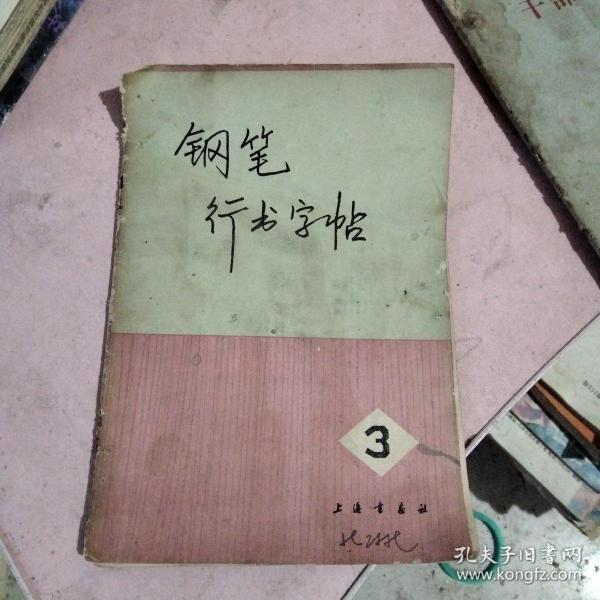 钢笔
行书字帖
3
上海书画社
孔夫子旧书网
www.kongfz.com